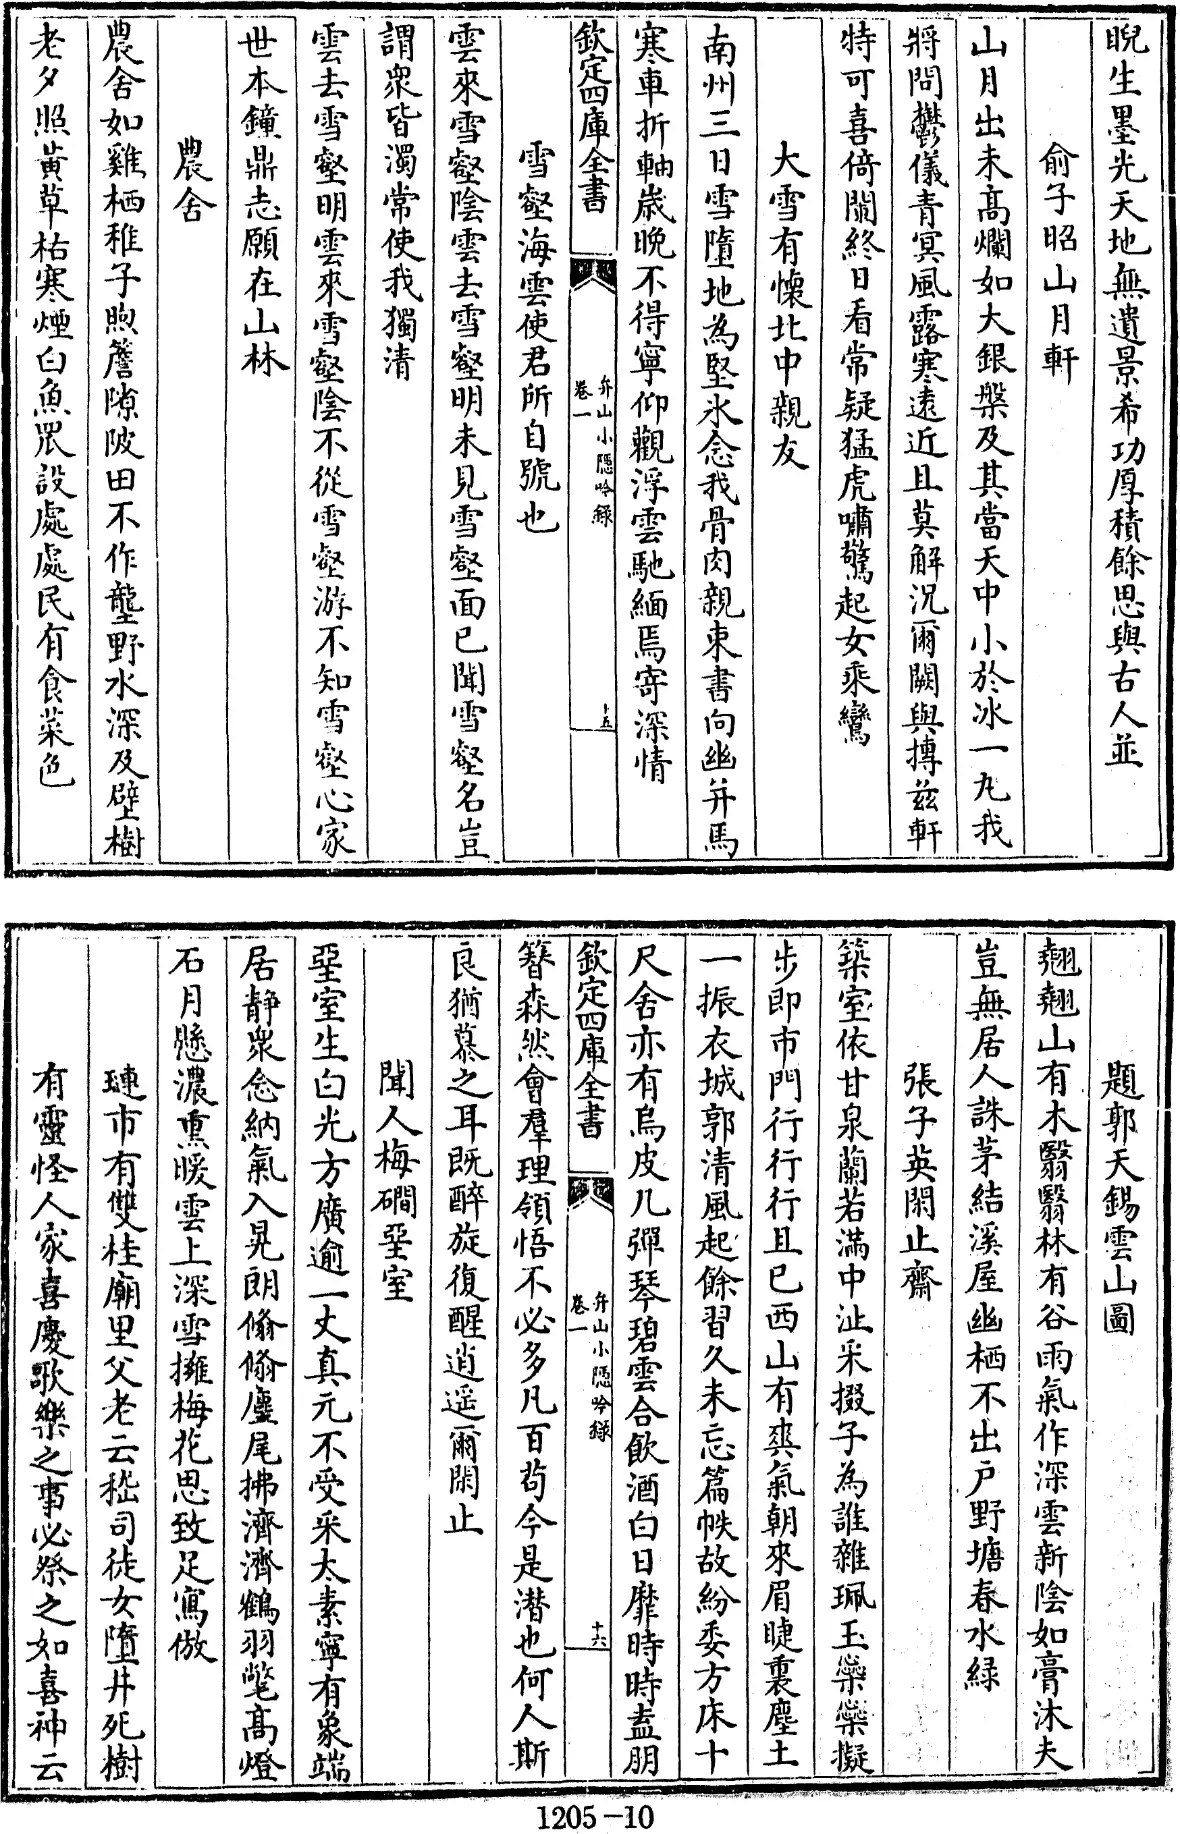 睨生墨光天地無遺景希功厚積餘思與古人並
俞子昭山月軒
山月出未高爛如大銀槃及其當天中小於冰一丸我
將問鬱儀青冥風露寒遠近且莫解況爾闕與摶兹軒
特可喜倚闌終日看常疑猛虎嘯驚起女乘鸞
大雪有懷北中親友
南州三日雪墮地為堅氷念我骨肉親束書向幽并馬
寒車折軸歲晚不得寧仰觀浮雲馳緬焉寄深情
欽定四庫全書
弁山小隱吟録
卷一
十五
雪壑海雲使君所自號也
雲來雪壑陰雲去雪壑明未見雪壑面已聞雪壑名豈
謂衆皆濁常使我獨清
雲去雪壑明雲來雪壑陰不從雪壑游不知雪壑心家
世本鐘鼎志願在山林
農舍
農舍如雞栖稚子煦簷隙陂田不作壟野水深及壁樹
老夕照黄草枯寒煙白魚罛設處處民有食菜色
題郭天錫雲山圖
翹翹山有木翳翳林有谷雨氣作深雲新陰如膏沐夫
豈無居人誅茅結溪屋幽栖不出户野塘春水緑
張子英閑止齋
築室依甘泉蘭若滿中沚采掇子為誰雜珮玉蘂蘂擬
步即市門行行行且已西山有爽氣朝來眉睫裏塵土
一振衣城郭清風起餘習久未忘篇帙故紛委方床十
尺舍亦有烏皮几彈琴碧雲合飲酒白日靡時時盍朋
欽定四庫全書
弁山小隱吟録
卷一
十六
簪森然會羣理領悟不必多凡百苟今是潜也何人斯
良猶慕之耳既醉旋復醒逍遥爾閑止
聞人梅磵堊室
堊室生白光方廣逾一丈真元不受采太素寜有象端
居靜衆念納氣入晃朗翛翛麈尾拂濟濟鶴羽氅高燈
石月懸濃熏暖雲上深雪擁梅花思致足寫倣
璉市有雙桂廟里父老云嵇司徒女墮井死樹
有靈怪人家喜慶歌樂之事必祭之如喜神云
1205-10